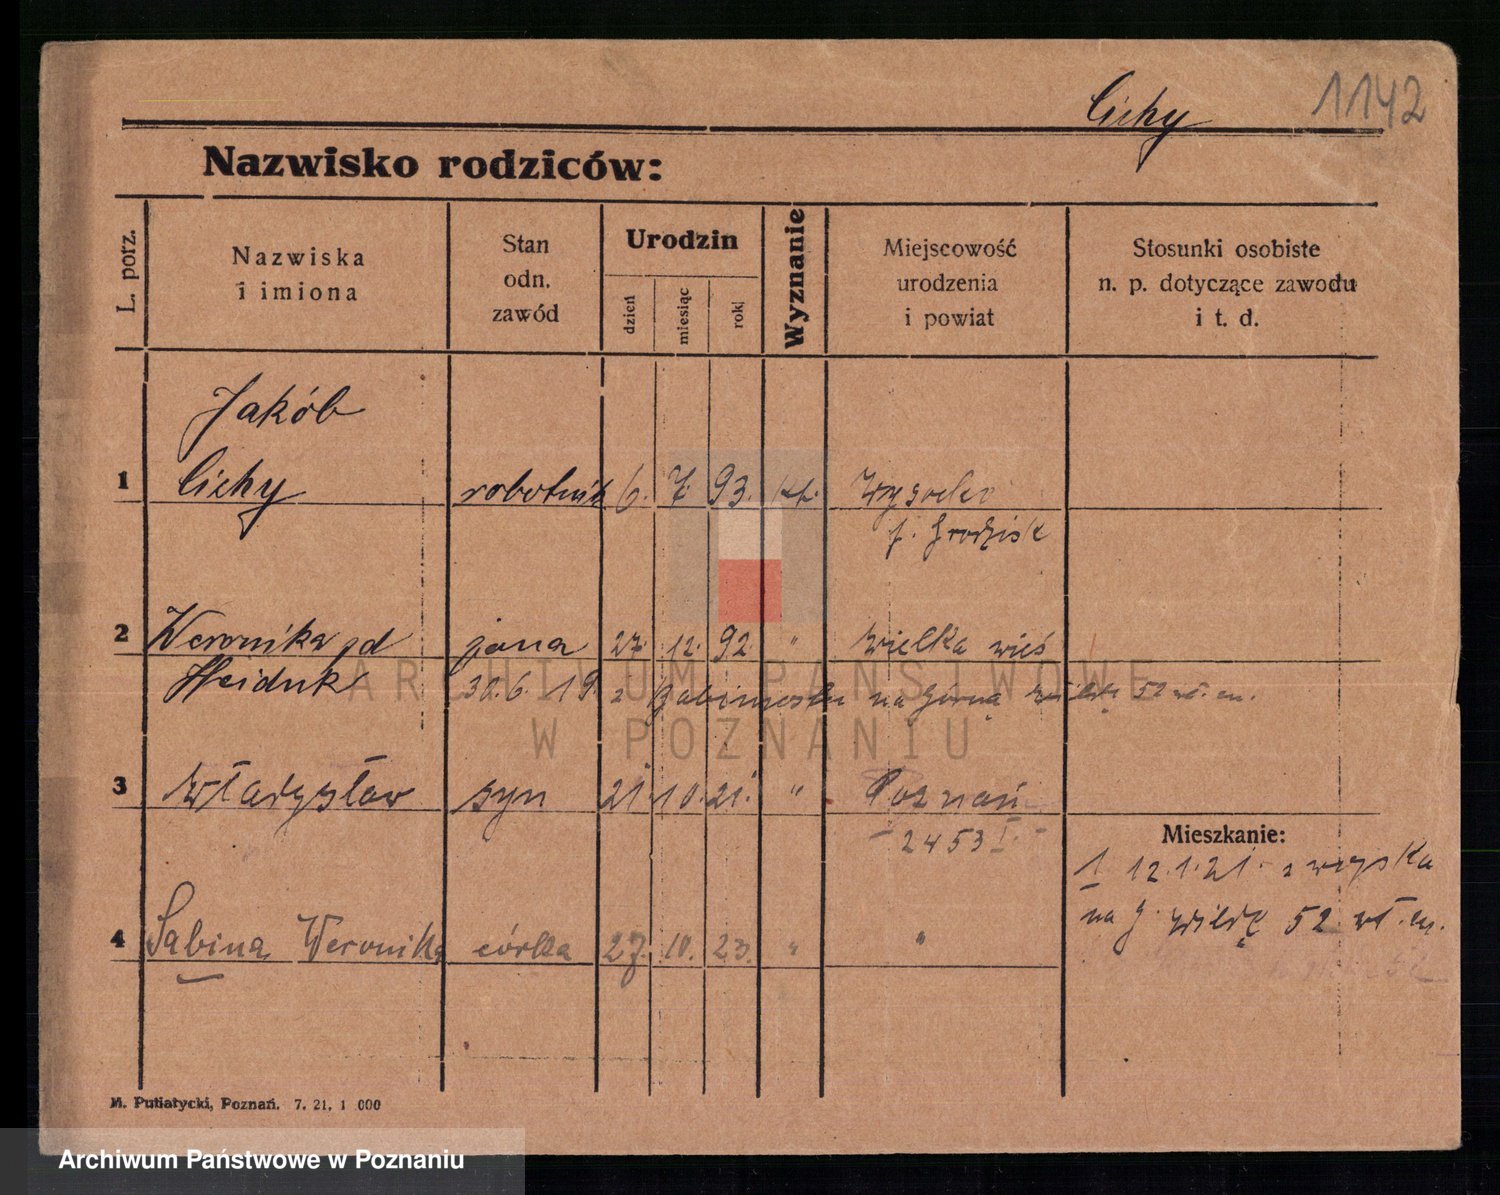 Cichy 1142
Nazwisko rodziców:
L. porz.
Nazwiska
i imiona
Stan
odn.
zawód
Urodzin
dzień
miesiąc
rok
Wyznanie
Miejscowość
urodzenia
i powiat
Stosunki osobiste
n. p. dotyczące zawodu
i t. d.
Jakób
1 Cichy robotnik 6. 7. 93. kt.
p. Grodzisk
2 Weronika żona 27. 12. 92. " Wielka wieś
Heiduk 30.6.19. z na Górną Wildę 52 wł. m.
3 Władysław syn 21. 10. 21. " Poznań
2453 I.
Mieszkanie:
1 12.1.21. z wojska
na G. Wildę 52 wł. m.
4 Sabina Weronika córka 27. 10. 23. " "
M. Putiatycki, Poznań. 7. 21. 1 000
ARCHIWUM PAŃSTWOWE
W POZNANIU
Archiwum Państwowe w Poznaniu